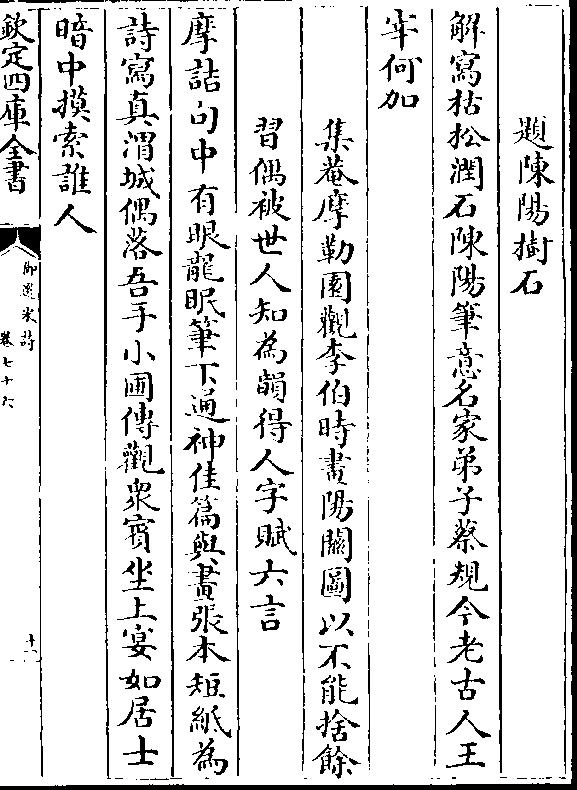 題陳陽樹石
解寫枯松潤石陳陽筆意名家弟子蔡規今老古人王
宰何加
集菴摩勒園觀李伯時畫陽關圖以不能捨餘
習偶被世人知為韻得人字賦六言
摩詰句中有眼龍眠筆下通神佳篇與畫張本短紙為
詩寫真渭城偶落吾手小圃傳觀衆賓坐上宴如居士
暗中摸索誰人
欽定四庫全書
御選宋詩
卷七十六